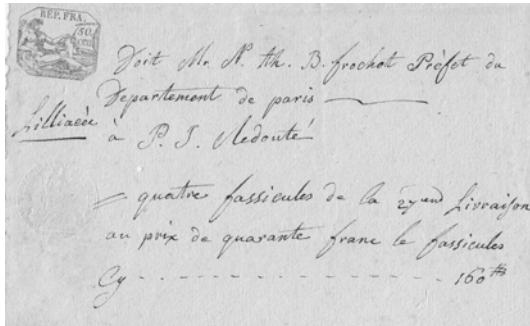 REP. FRA.
50
cen
Doit Mr. N. th. B. frochot Préfet du
Département de paris
Lilliacée
à P. J. Redouté
= quatre fassicules de la 27eme Livraison
au prix de quarante franc le fassicules
Cy - - - - - - - - - - - - - - - 160 tt